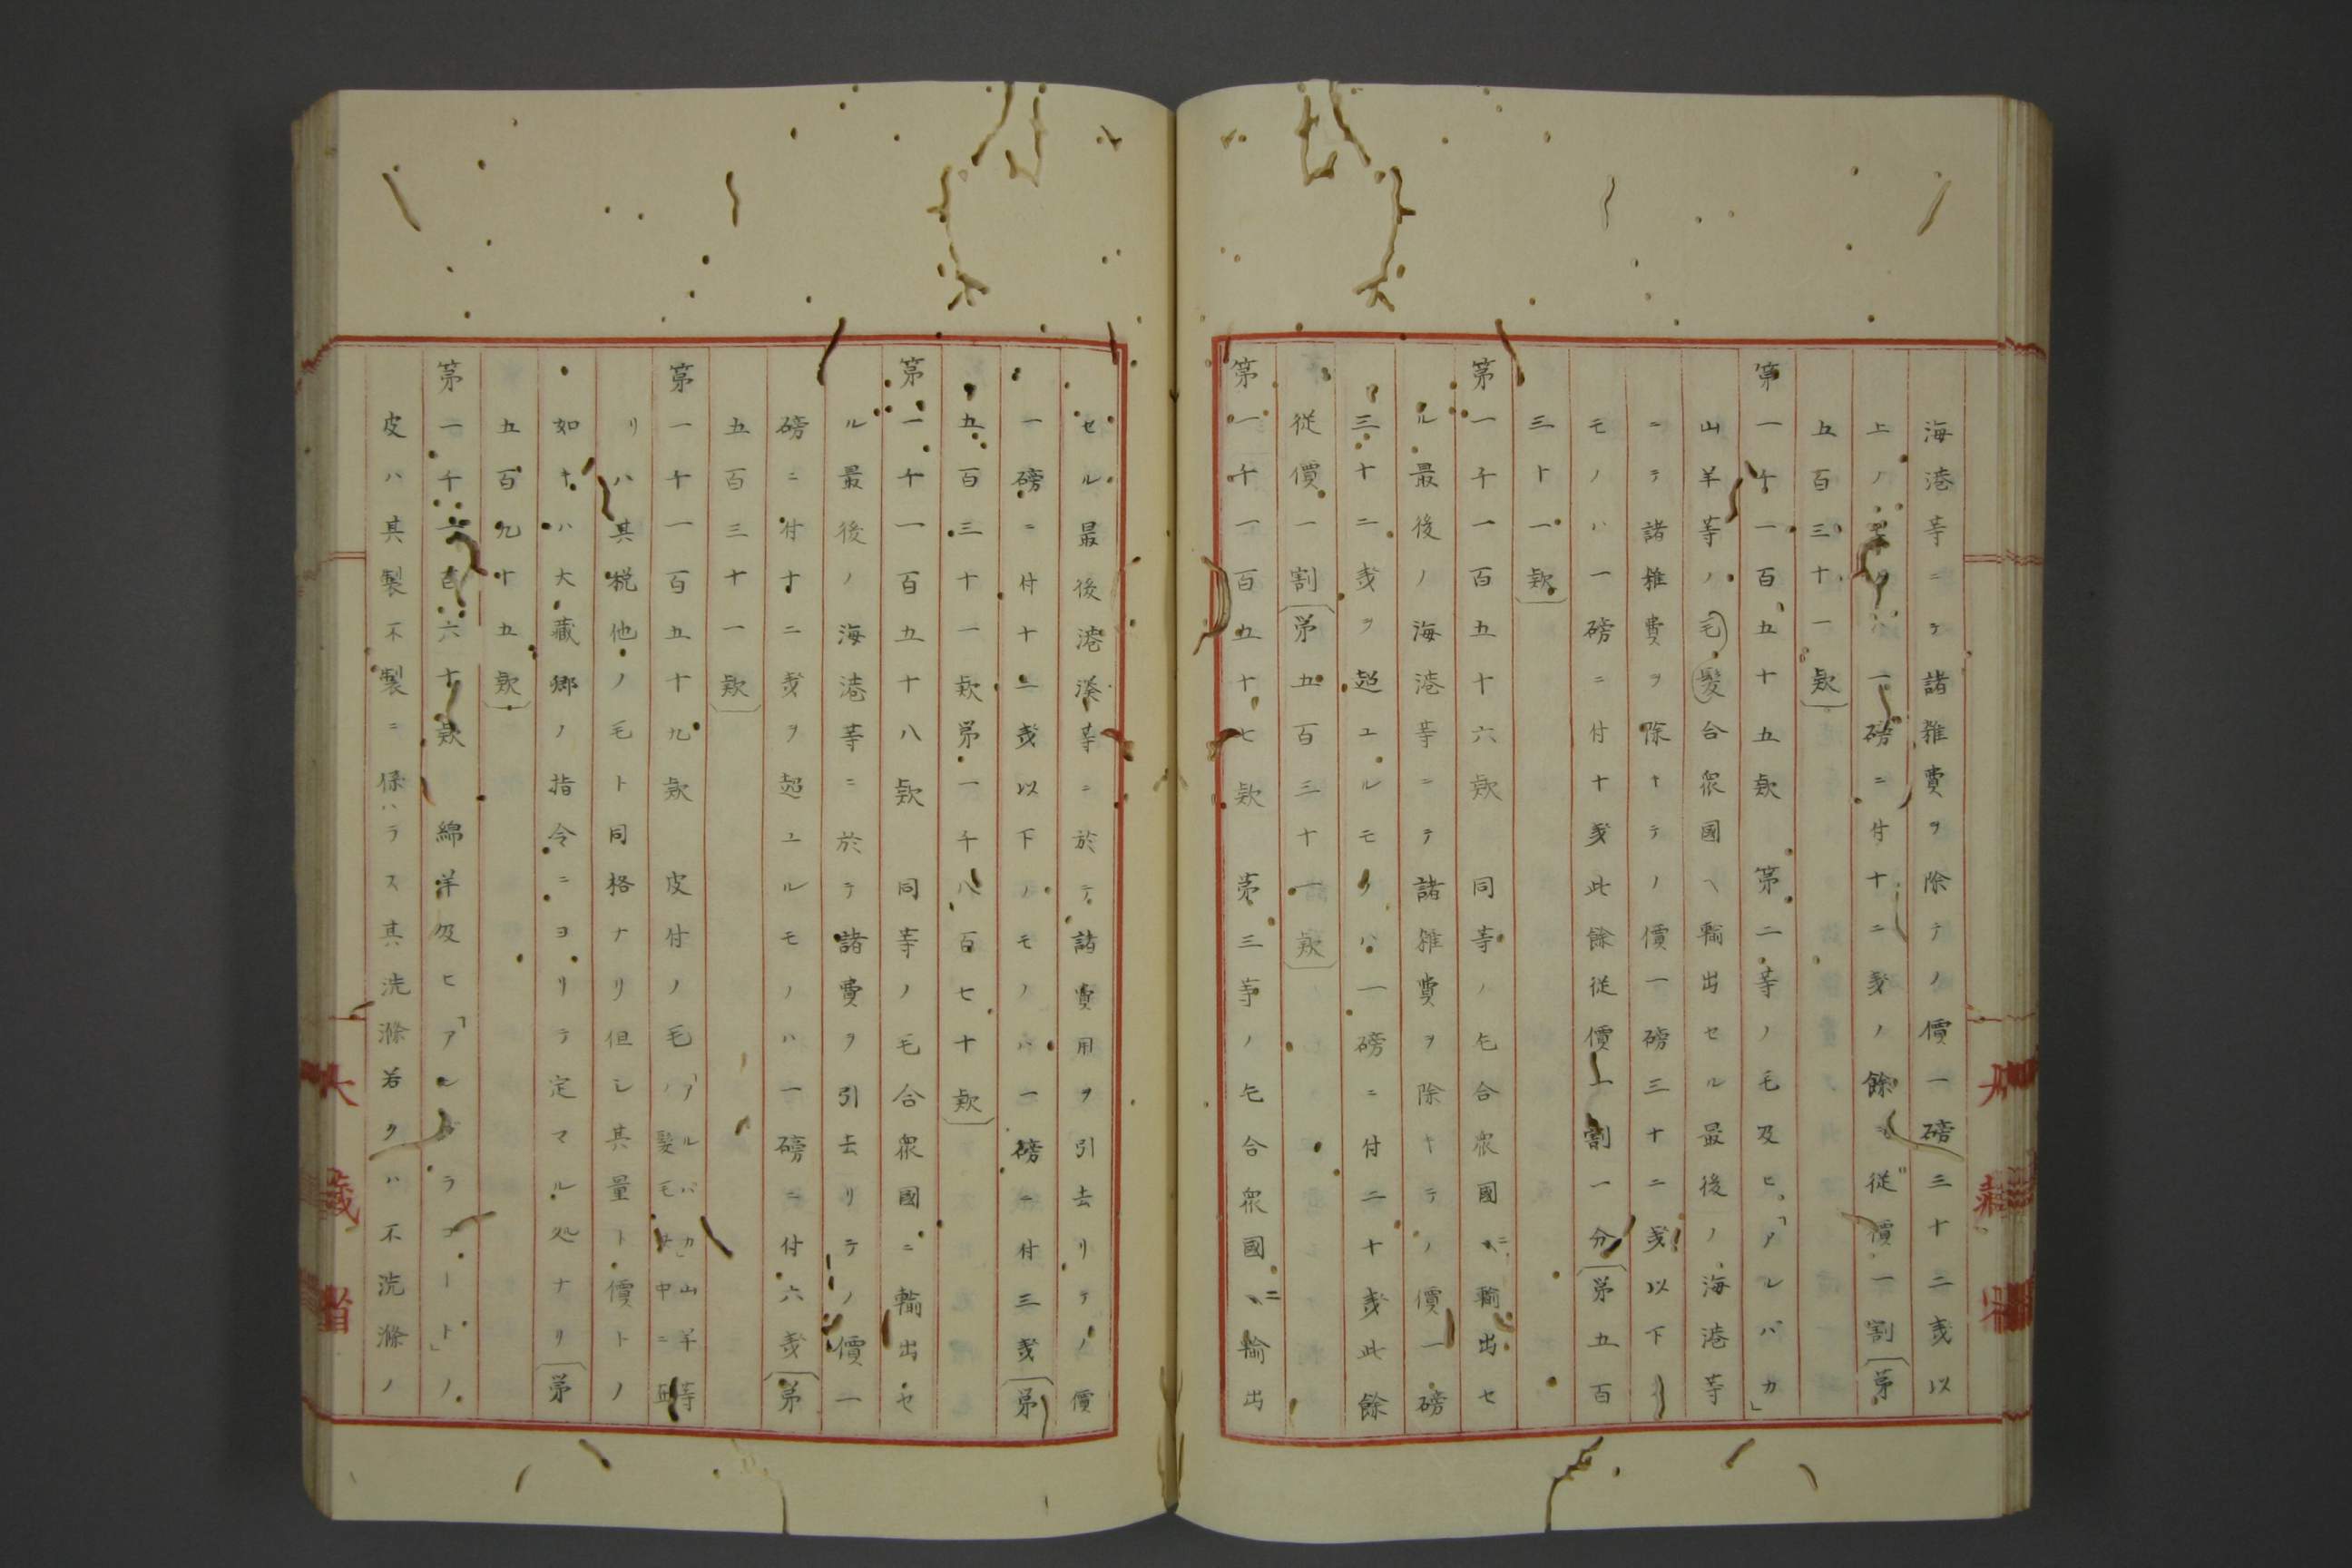 海港等ニテ諸雑費ヲ除テノ價一磅三十二戔以
上ノ一磅ニ付十二戔ノ餘従價一割(第
五百三十一欵)
第一千一百五十五欵 第二等ノ毛及ヒ「アルパカ」
山羊等ノ毛髪合衆國ヘ輸出セル最後ノ海港等
ニテ諸雑費ヲ除キテノ價一磅三十二戔以下ノ
モノハ一磅ニ付十戔此餘従價一割一分(第五百
三十一欵)
第一千一百五十六欵 同等ノ毛合衆國ニ輸出セ
ル最後ノ海港等ニテ諸雑費ヲ除キテノ價一磅
三十二戔ヲ超ユルモノハ一磅ニ付二十戔此餘
従價一割(第五百三十一欵)
第一千一百五十七欵 第三等ノ毛合衆國ニ輸出
セル最後港湊等ニ於テ諸費用ヲ引去リテノ價
一磅ニ付十二戔以下ノモノハ一磅ニ付三戔(第
五百三十一欵第一千八百七十欵)
第一千一百五十八欵 同等ノ毛合衆國ニ輸出セ
ル最後ノ海港等ニ於テ諸費ヲ引去リテノ價一
磅ニ付十二戔ヲ超ユルモノハ一磅ニ付六戔(第
五百三十一欵)
第一千一百五十九欵 皮付ノ毛「アルパカ」山羊等ノ髪毛中ニ
リハ其税他ノ毛ト同格ナリ但シ其量ト價トノ
如キハ大藏郷ノ指令ニヨリテ定マル処ナリ(第
五百九十五欵)
第一千一百六十欵 綿洋及ヒ「アンゴラゴート」ノ
皮ハ其製不製ニ係ハラス其洗滌若クハ不洗滌ノ
大藏省